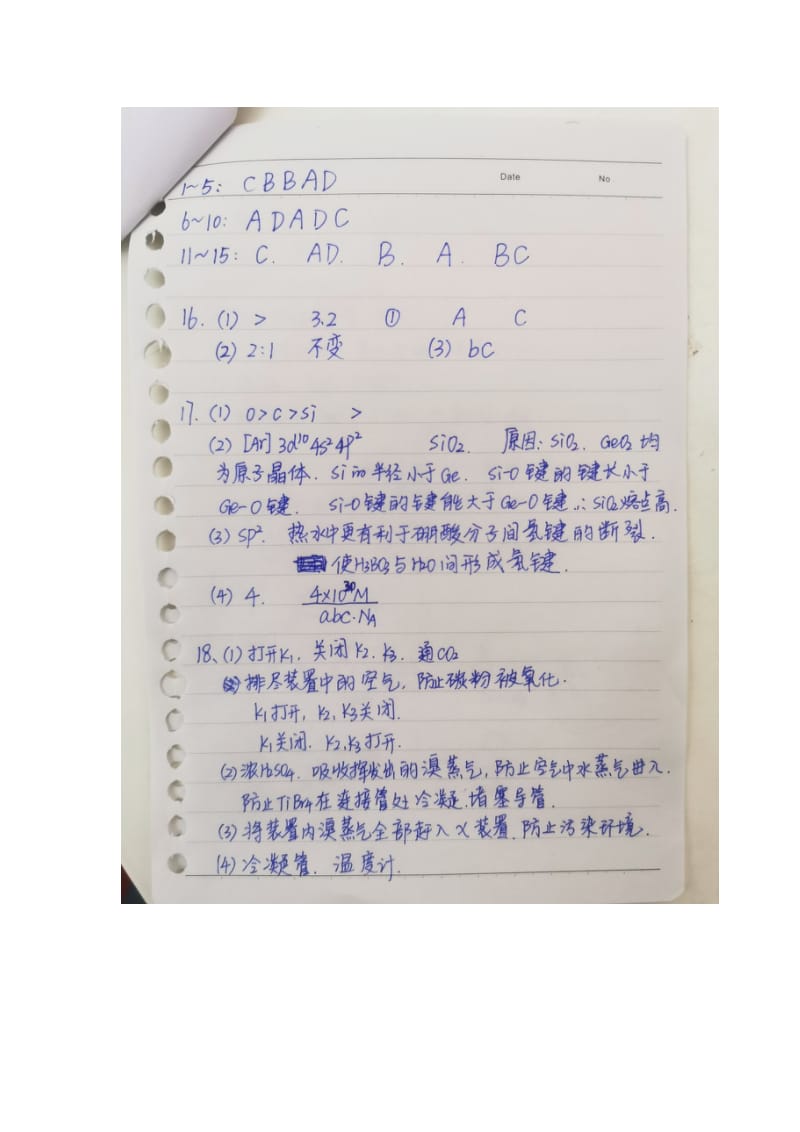 Date No
1~5: C B B A D
6~10: A D A D C
11~15: C. AD. B. A. BC
16. (1) > 3.2 ① A C
(2) 2:1 不变 (3) bC
17. (1) O>C>Si >
(2) [Ar]3d¹⁰4s²4p² SiO₂ 原因: SiO₂. GeO₂ 均
为原子晶体. Si的半径小于Ge. Si-O键的键长小于
Ge-O键. Si-O键的键能大于Ge-O键. ∴SiO₂熔点高.
(3) SP². 热水中更有利于硼酸分子间氢键的断裂.
使H₃BO₃与H₂O间形成氢键.
(4) 4. 4×10³⁰M
abc·N_A
18、(1) 打开K₁. 关闭K₂. K₃. 通CO₂
排尽装置中的空气, 防止碳粉被氧化.
K₁打开, K₂, K₃关闭.
K₁关闭. K₂, K₃打开.
(2) 浓H₂SO₄. 吸收挥发出的溴蒸气, 防止空气中水蒸气进入.
防止TiBr₄在连接管处冷凝. 堵塞导管.
(3) 将装置内溴蒸气全部赶入X装置. 防止污染环境.
(4) 冷凝管. 温度计.